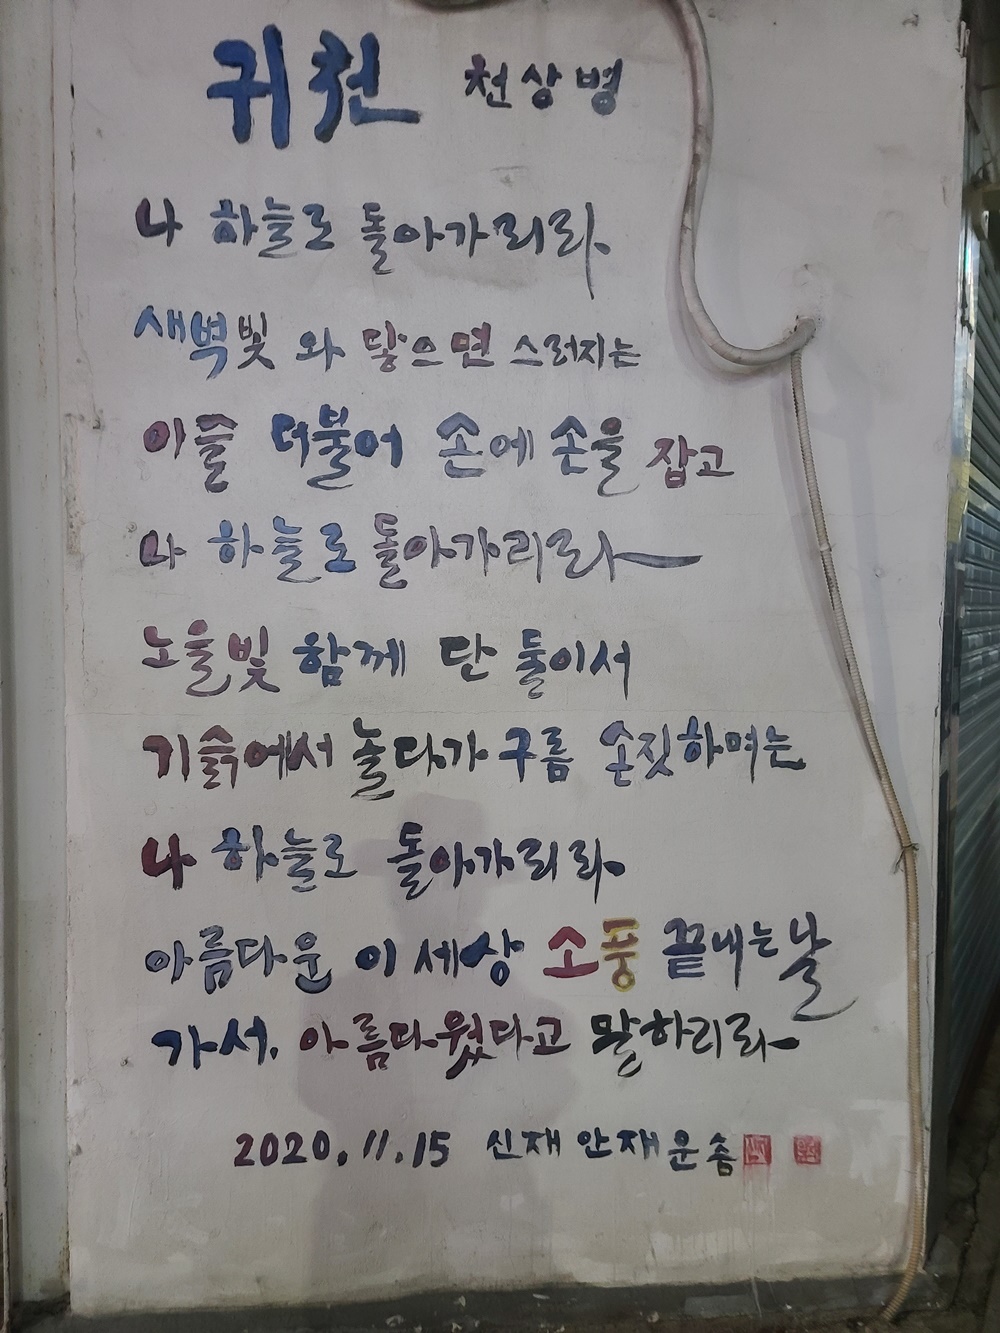 귀천 천상병
나 하늘로 돌아가리라.
새벽빛 와 닿으면 스러지는
이슬 더불어 손에 손을 잡고
나 하늘로 돌아가리라
노을빛 함께 단 둘이서
기슭에서 놀다가 구름 손짓하며는
나 하늘로 돌아가리라.
아름다운 이 세상 소풍 끝내는 날
가서. 아름다웠다고 말하리라
2020.11.15 신재 안재운 춤